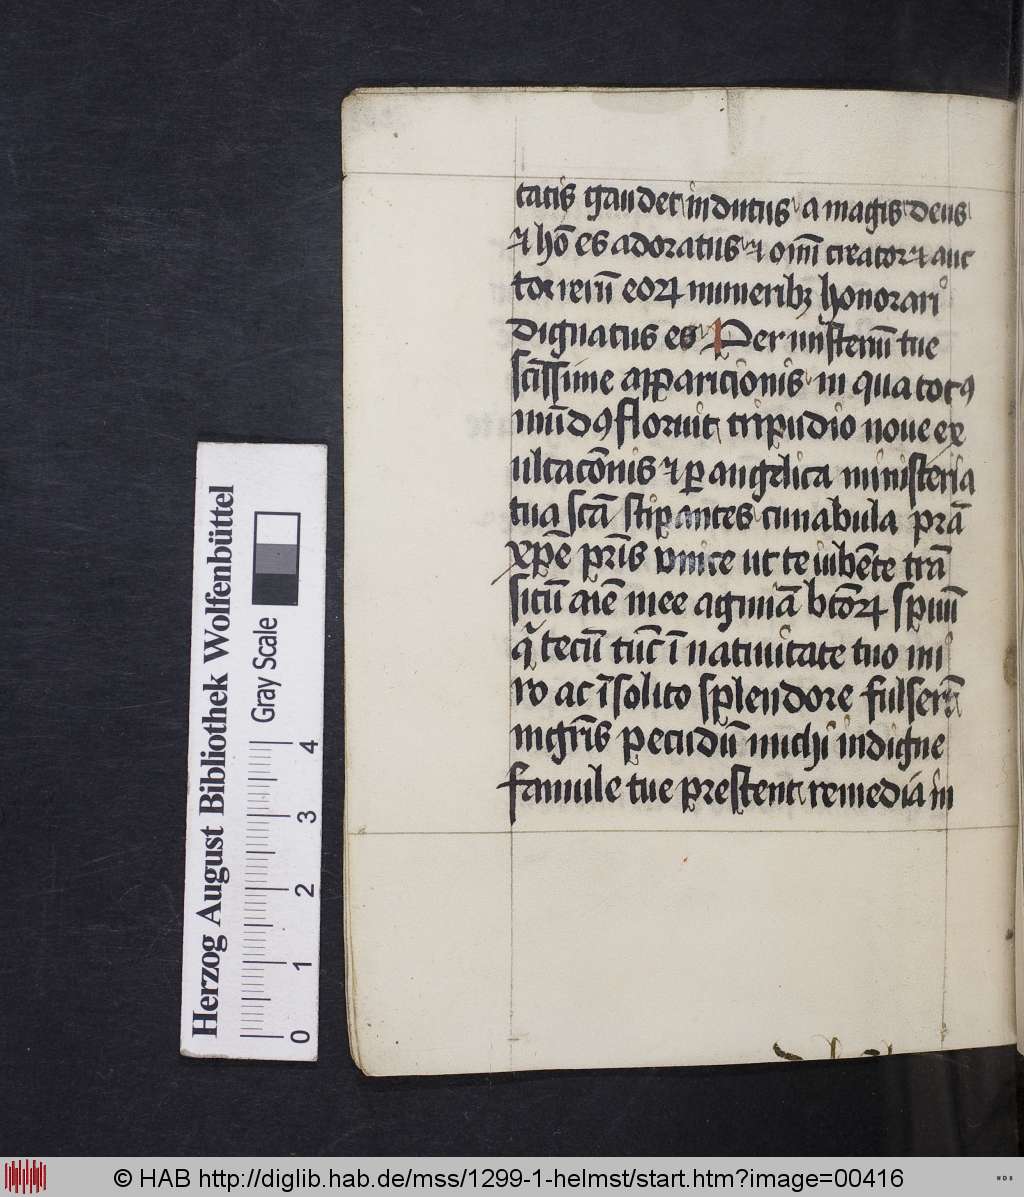 tatis gaudet indutus a magis deus
⁊ hō es adoratus ⁊ oīm creator ⁊ auc
tor reꝝ eoꝝ muneribꝫ honorari
dignatus es Per misteriū tue
scissime apparicionis in qua totꝰ
mūdꝰ floruit tripudio noue ex
ultacōnis ⁊ ꝑ angelica ministeria
tua scā stipantes cunabula prā
xpē pr̄is vnice ut te iubēte trā
situ aīe mee agminā btōꝝ spūū
q̄ tecū tūc ī natiuitate tuo mi
ro ac īsolito splendore fulserūt
ingr̄is pecudū michi indigne
famule tue prestent remedia in
Herzog August Bibliothek Wolfenbüttel
Gray Scale
0 1 2 3 4
© HAB http://diglib.hab.de/mss/1299-1-helmst/start.htm?image=00416